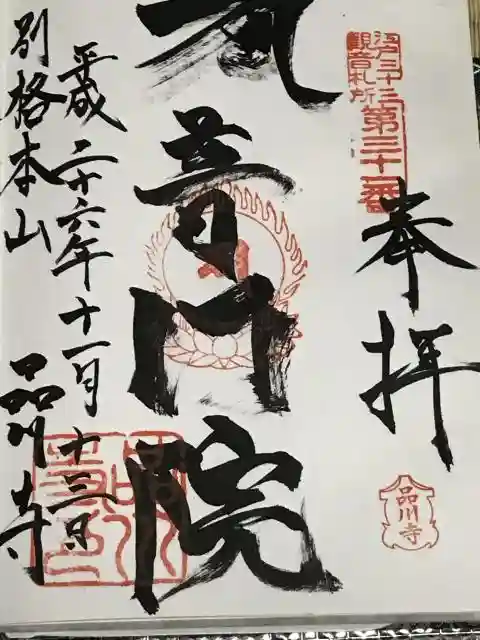 江戸三十三
観音札所
第三十一番
奉拝
品川寺
普門院
平成二十六年十一月十三日
別格本山 品川寺